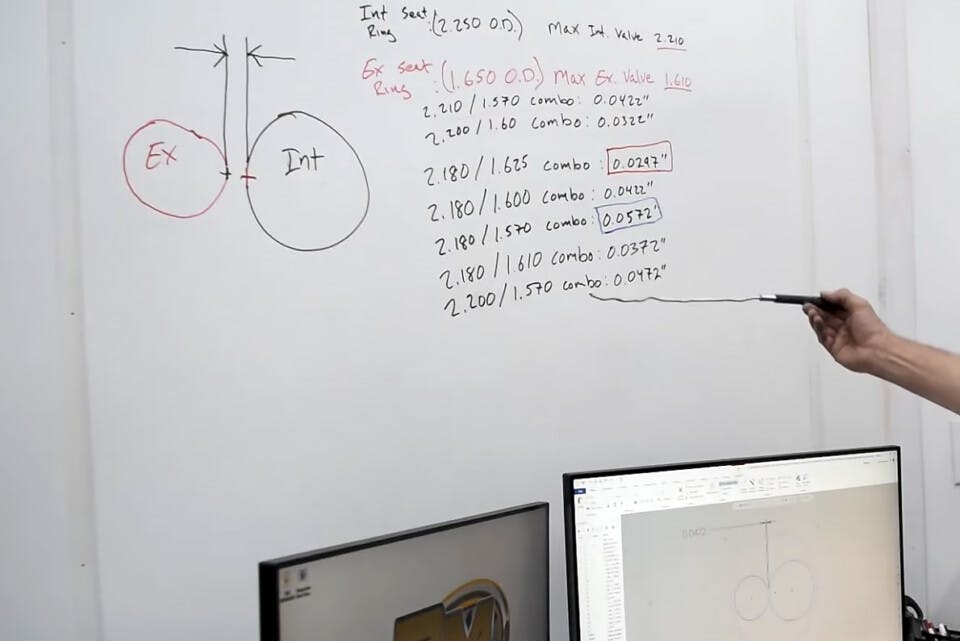 Int Seat Ring : (2.250 O.D.) Max Int. Valve 2.210
Ex Seat Ring : (1.650 O.D.) Max Ex. Valve 1.610
2.210 / 1.570 combo: 0.0422"
2.200 / 1.60 combo: 0.0322"
2.180 / 1.625 combo: 0.0297"
2.180 / 1.600 combo: 0.0422"
2.180 / 1.570 combo: 0.0572"
2.180 / 1.610 combo: 0.0372"
2.200 / 1.570 combo: 0.0472"
Ex
Int